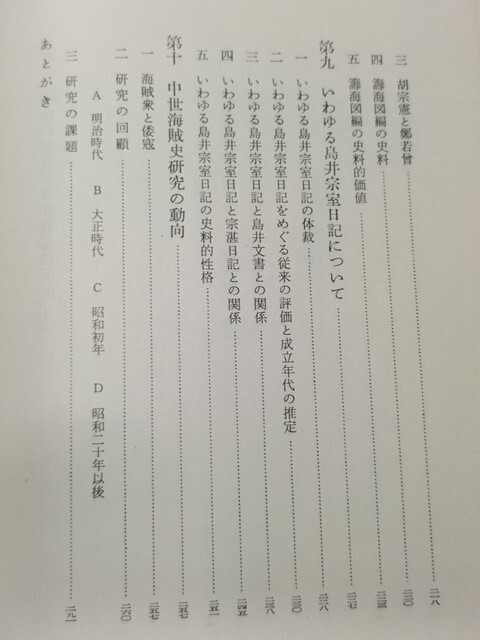 三 胡宗憲と鄭若曽……二一八
四 籌海図編の史料……二二〇
五 籌海図編の史料的価値……二二三
第九 いわゆる島井宗室日記について……二二七
一 いわゆる島井宗室日記の体裁……二二八
二 いわゆる島井宗室日記をめぐる従来の評価と成立年代の推定……二三〇
三 いわゆる島井宗室日記と島井文書との関係……二三八
四 いわゆる島井宗室日記と宗湛日記との関係……二四五
五 いわゆる島井宗室日記の史料的性格……二五一
第十 中世海賊史研究の動向……二五七
一 海賊衆と倭寇……二五七
二 研究の回顧……二六〇
A 明治時代 B 大正時代 C 昭和初年 D 昭和二十年以後
三 研究の課題……二九一
あとがき